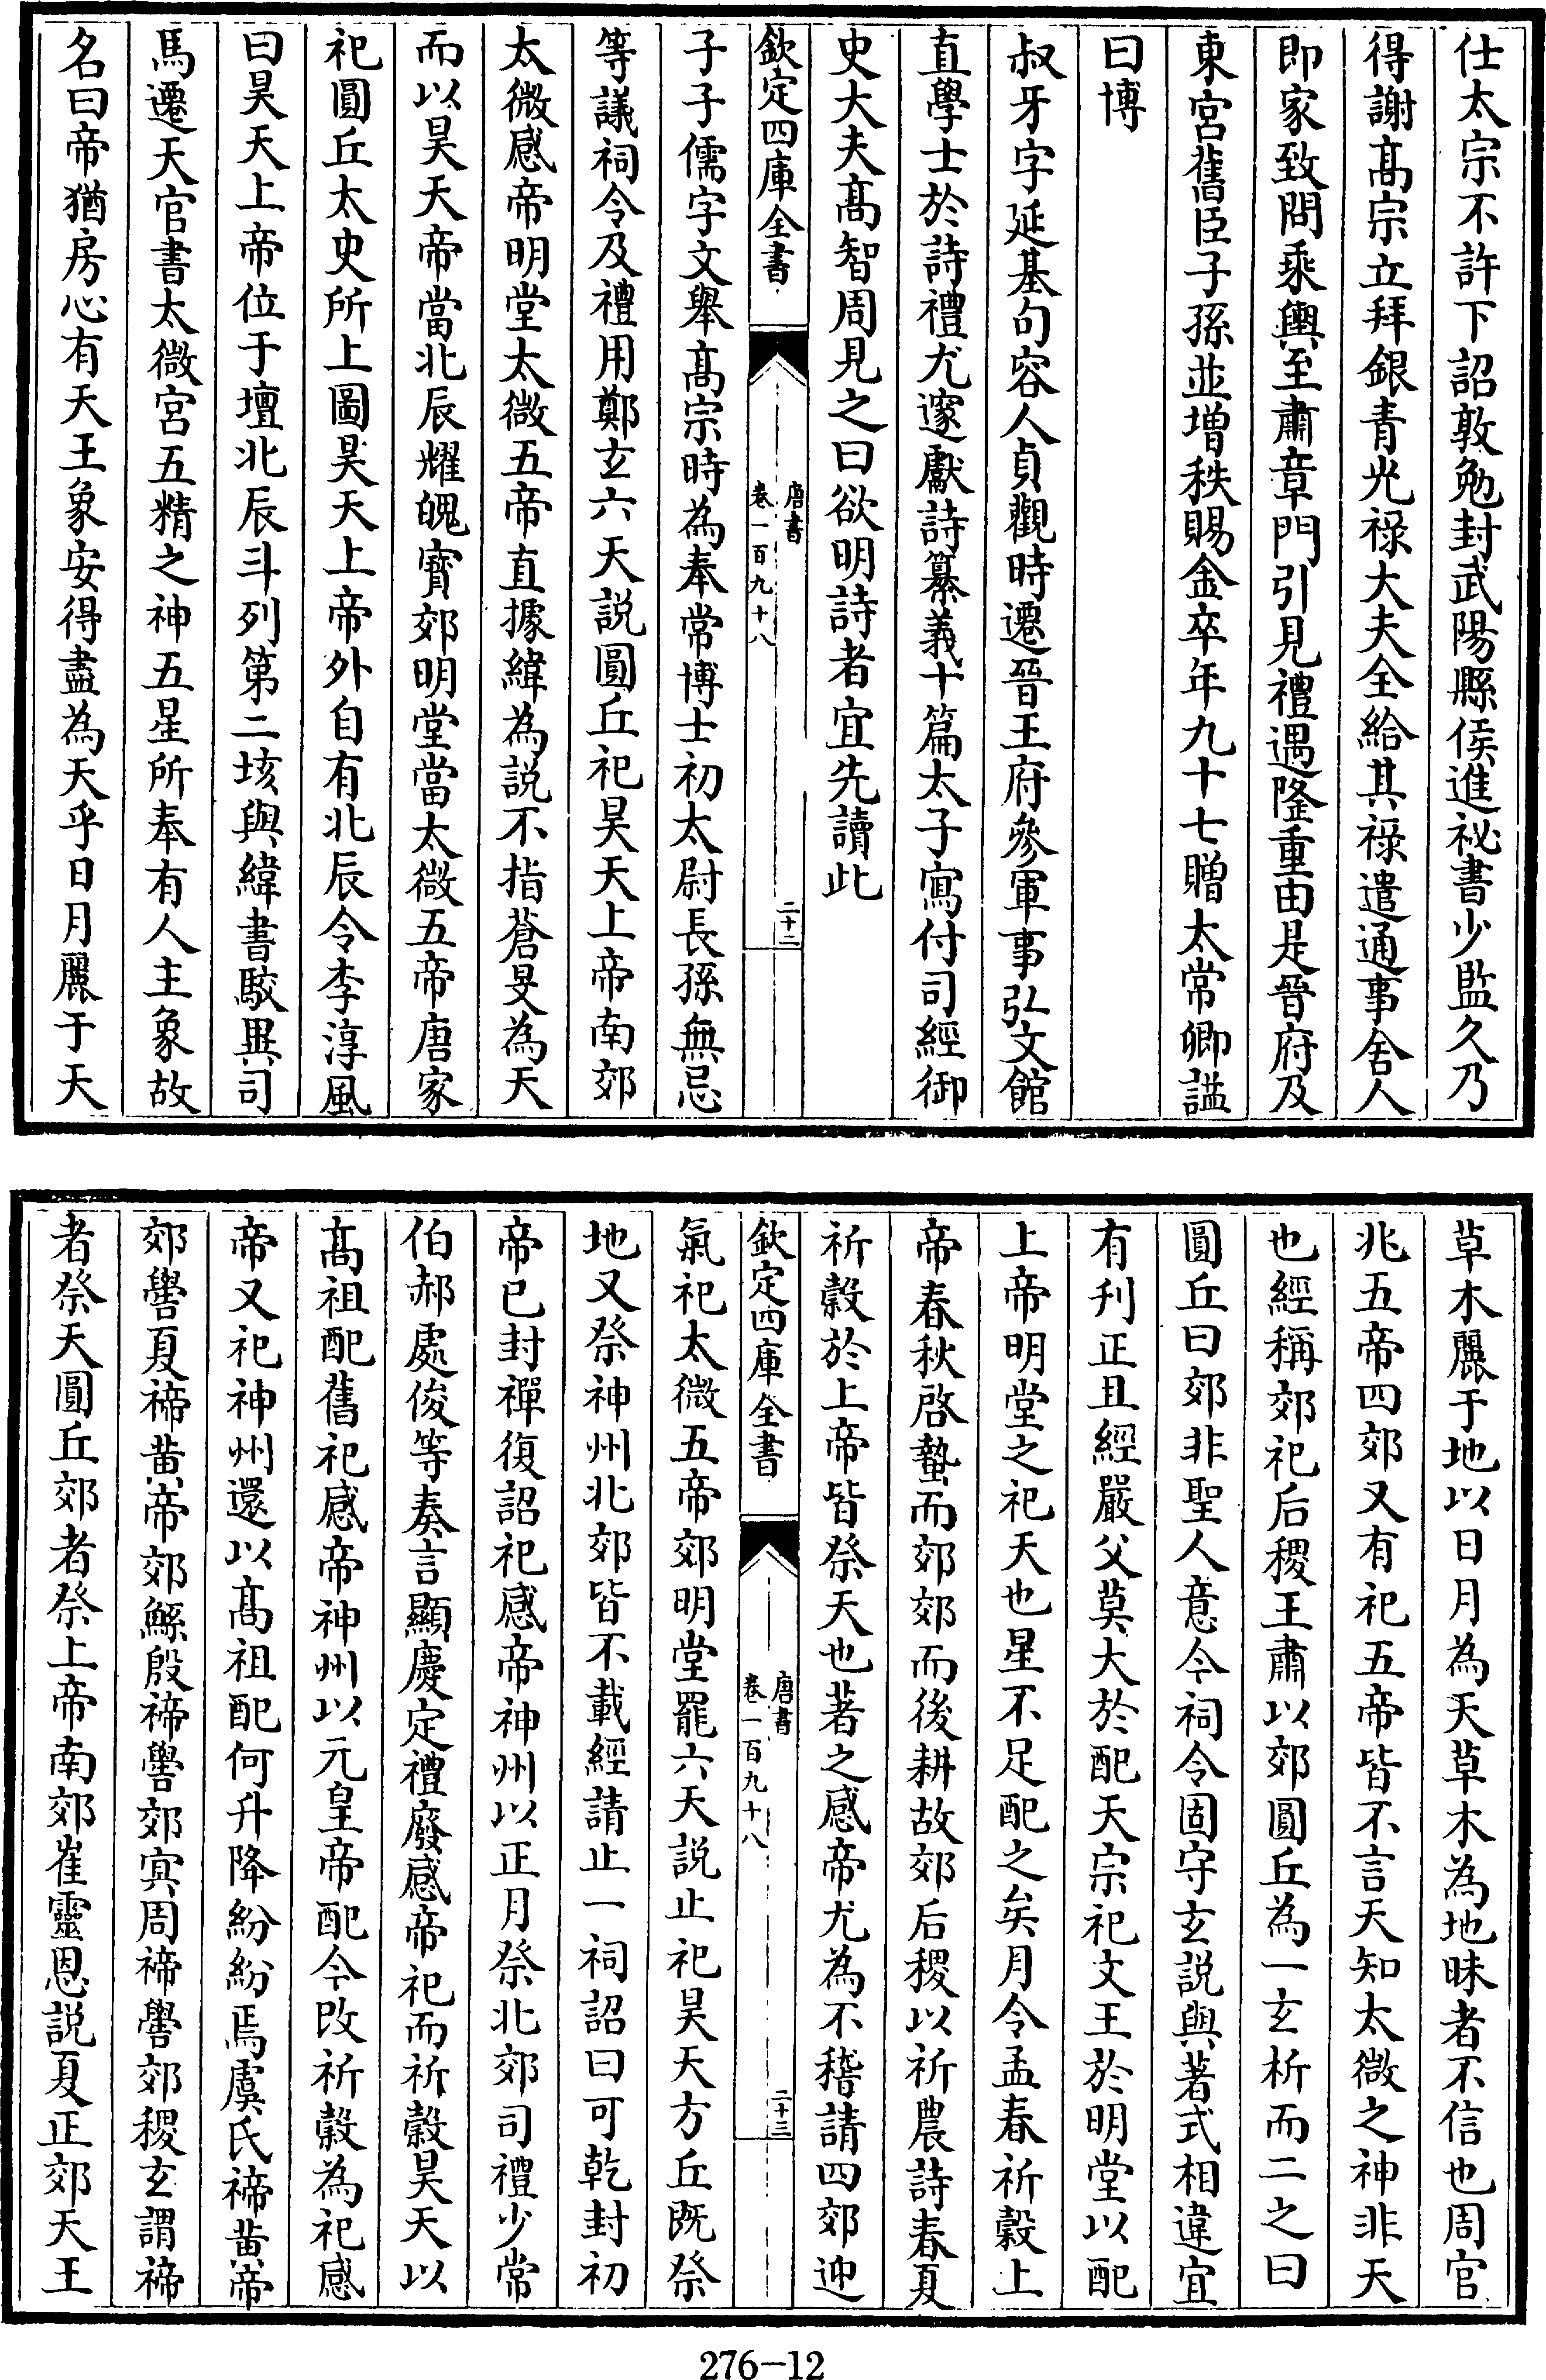 仕太宗不許下詔敦勉封武陽縣侯進祕書少監久乃
得謝髙宗立拜銀青光禄大夫全給其禄遣通事舍人
即家致問乘輿至肅章門引見禮遇隆重由是晉府及
東宮舊臣子孫並增秩賜金卒年九十七贈太常卿諡
曰博
叔牙字延基句容人貞觀時遷晉王府參軍事弘文館
直學士於詩禮尤邃獻詩纂義十篇太子寫付司經御
史大夫髙智周見之曰欲明詩者宜先讀此
欽定四庫全書
唐書
卷一百九十八
二十二
子子儒字文舉髙宗時為奉常博士初太尉長孫無忌
等議祠令及禮用鄭玄六天説圓丘祀昊天上帝南郊
太微感帝明堂太微五帝直據緯為説不指蒼旻為天
而以昊天帝當北辰耀魄寳郊明堂當太微五帝唐家
祀圓丘太史所上圖昊天上帝外自有北辰令李淳風
曰昊天上帝位于壇北辰斗列第二垓與緯書駮異司
馬遷天官書太微宮五精之神五星所奉有人主象故
名曰帝猶房心有天王象安得盡為天乎日月麗于天
草木麗于地以日月為天草木為地昧者不信也周官
兆五帝四郊又有祀五帝皆不言天知太微之神非天
也經稱郊祀后稷王肅以郊圓丘為一玄析而二之曰
圓丘曰郊非聖人意今祠令固守玄説與著式相違宜
有刋正且經嚴父莫大於配天宗祀文王於明堂以配
上帝明堂之祀天也星不足配之矣月令孟春祈穀上
帝春秋啓蟄而郊郊而後耕故郊后稷以祈農詩春夏
祈穀於上帝皆祭天也著之感帝尤為不稽請四郊迎
欽定四庫全書
唐書
卷一百九十八
二十三
氣祀太微五帝郊明堂罷六天説止祀昊天方丘既祭
地又祭神州北郊皆不載經請止一祠詔曰可乾封初
帝已封禪復詔祀感帝神州以正月祭北郊司禮少常
伯郝處俊等奏言顯慶定禮廢感帝祀而祈穀昊天以
髙祖配舊祀感帝神州以元皇帝配今改祈穀為祀感
帝又祀神州還以髙祖配何升降紛紛焉虞氏禘黄帝
郊嚳夏禘黄帝郊鯀殷禘嚳郊冥周禘嚳郊稷玄謂禘
者祭天圓丘郊者祭上帝南郊崔靈恩説夏正郊天王
276-12